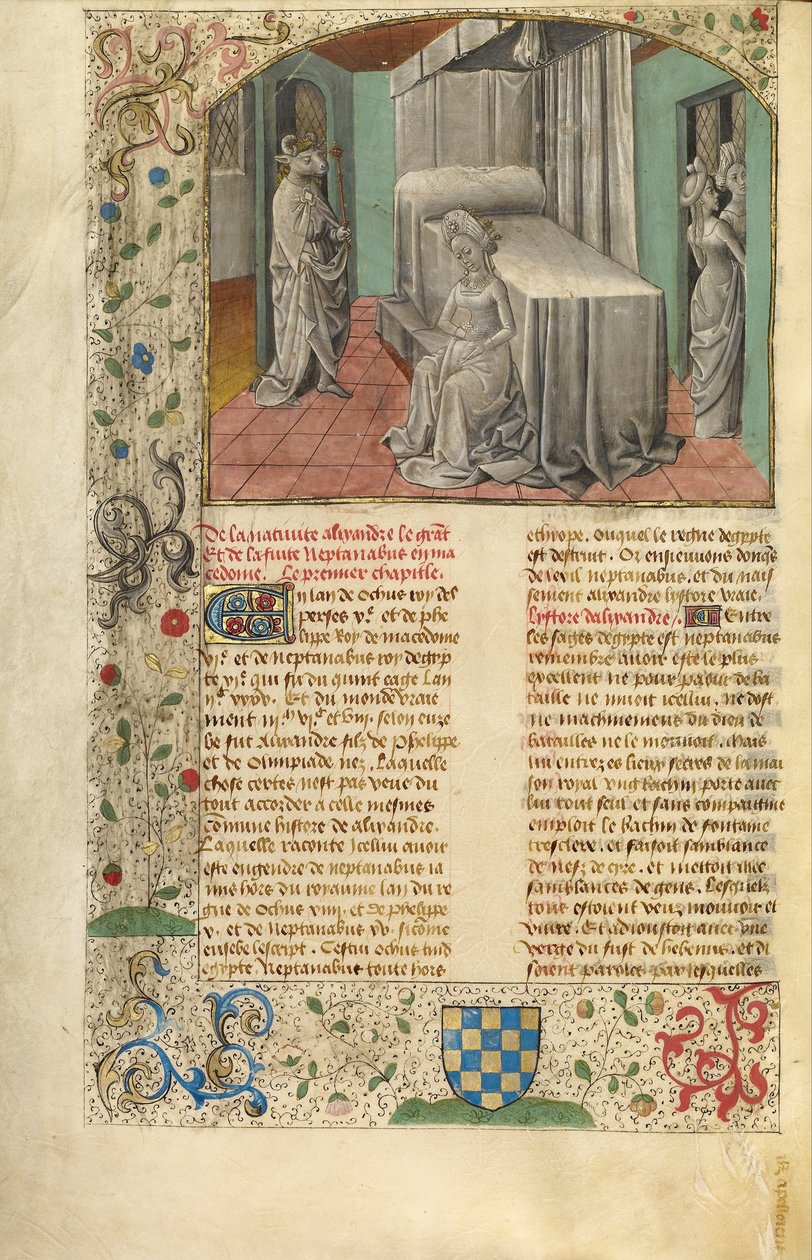 De la nativite alixandre le grãt
Et de la fuite Neptanabus en ma
cedone. Le premier chapitle.
En lan de Ochus roy des
perses vᵉ. et de phe
lippe Roy de macedome
viᵉ. et de Neptanabus roy degyp
te viᵉ. qui fu du quint eage Lan
Et du monde vraie
ment selon euze
be fut Alixandre filz de Phelippe
et de Olimpiade nez. Laquelle
chose certes nest pas veue du
tout accorder a celle mesmes
cõmune histore de alixandre.
Laquelle raconte Icellui avoir
este engendre de neptanabus ia
mis hors du royaume lan du re
gne de Ochus viiii. et de phelippe
v. et de Neptanabus xv. sicome
eusebe lescript. Cestui ochus
egypte Neptanabus toute hors
ethyope. Ouquel le regne degypte
est destruit. Or ensieuuons donqs
de lexil neptanabus. et du nais
sement alixandre lystore vraie.
Lystore dalixandre. Entre
les sages degypte est neptanabus
remembre avoir este le plus
excellent ne pour paour de ba
taille ne muoit icellui. ne dost
ne machinemens du dieu de
batailles ne le mouvoit. Mais
lui entrez es lieux secres de la mai
son royal ung bachin porte avec
lui tout seul et sans compaignie
emploit le bachin de fontaine
tresclere. et faisoit samblance
de nefz de cyre. et mettoit
samblances de gens. Lesquelz
tous estoient veuz mouvoir et
vivre. Et adioustoit avec une
verge du fust de hebenus. et di
soient paroles par lesquelles